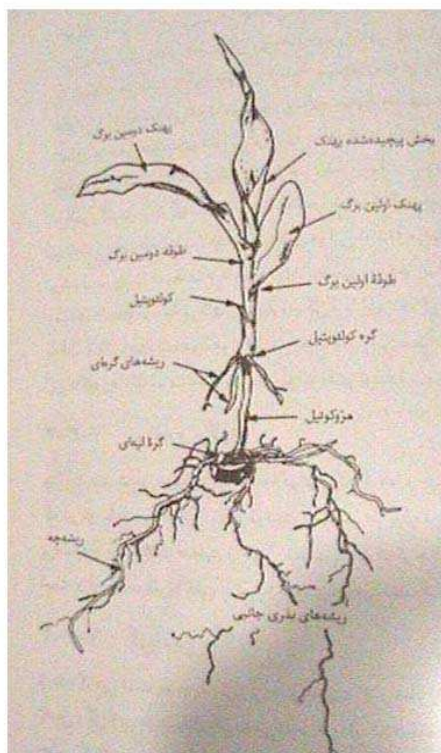 پهنک دومین برگ
بخش پیچیده‌شده پهنک
پهنک اولین برگ
طوقه دومین برگ
طوقهٔ اولین برگ
کولئوپتیل
گره کولئوپتیل
ریشه‌های گره‌ای
مزوکوتیل
گرهٔ لپه‌ای
ریشه‌چه
ریشه‌های بذری جانبی